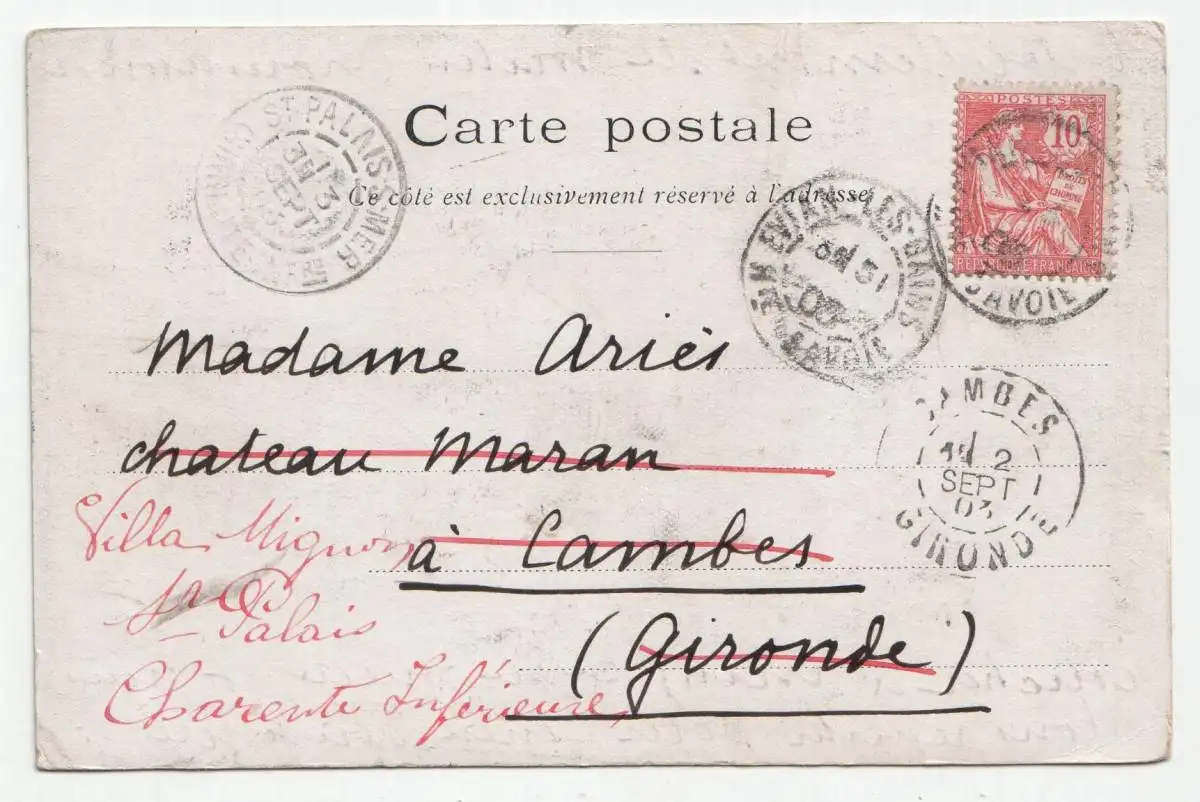 Carte postale
Ce côté est exclusivement réservé à l'adresse
POSTES
10
DROITS DE L'HOMME
REPUBLIQUE FRANÇAISE
SAVOIE
ST PALAIS-S-MER
3E 3
SEPT
03
INFRE
EVIAN-LES-BAINS
3E 31
SAVOIE
Madame Ariès
chateau Maran
à Cambes
(Gironde)
CAMBES
1E 2
SEPT
03
GIRONDE
Villa Mignon
St Palais
Charente Inférieure